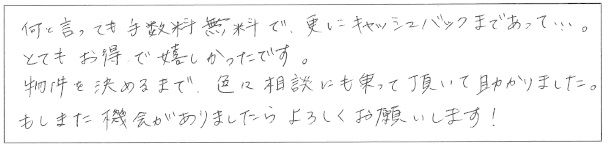 何と言っても手数料無料で、更にキャッシュバックまであって…。
とてもお得で嬉しかったです。
物件を決めるまで、色々相談にも乗って頂いて助かりました。
もしまた機会がありましたらよろしくお願いします！